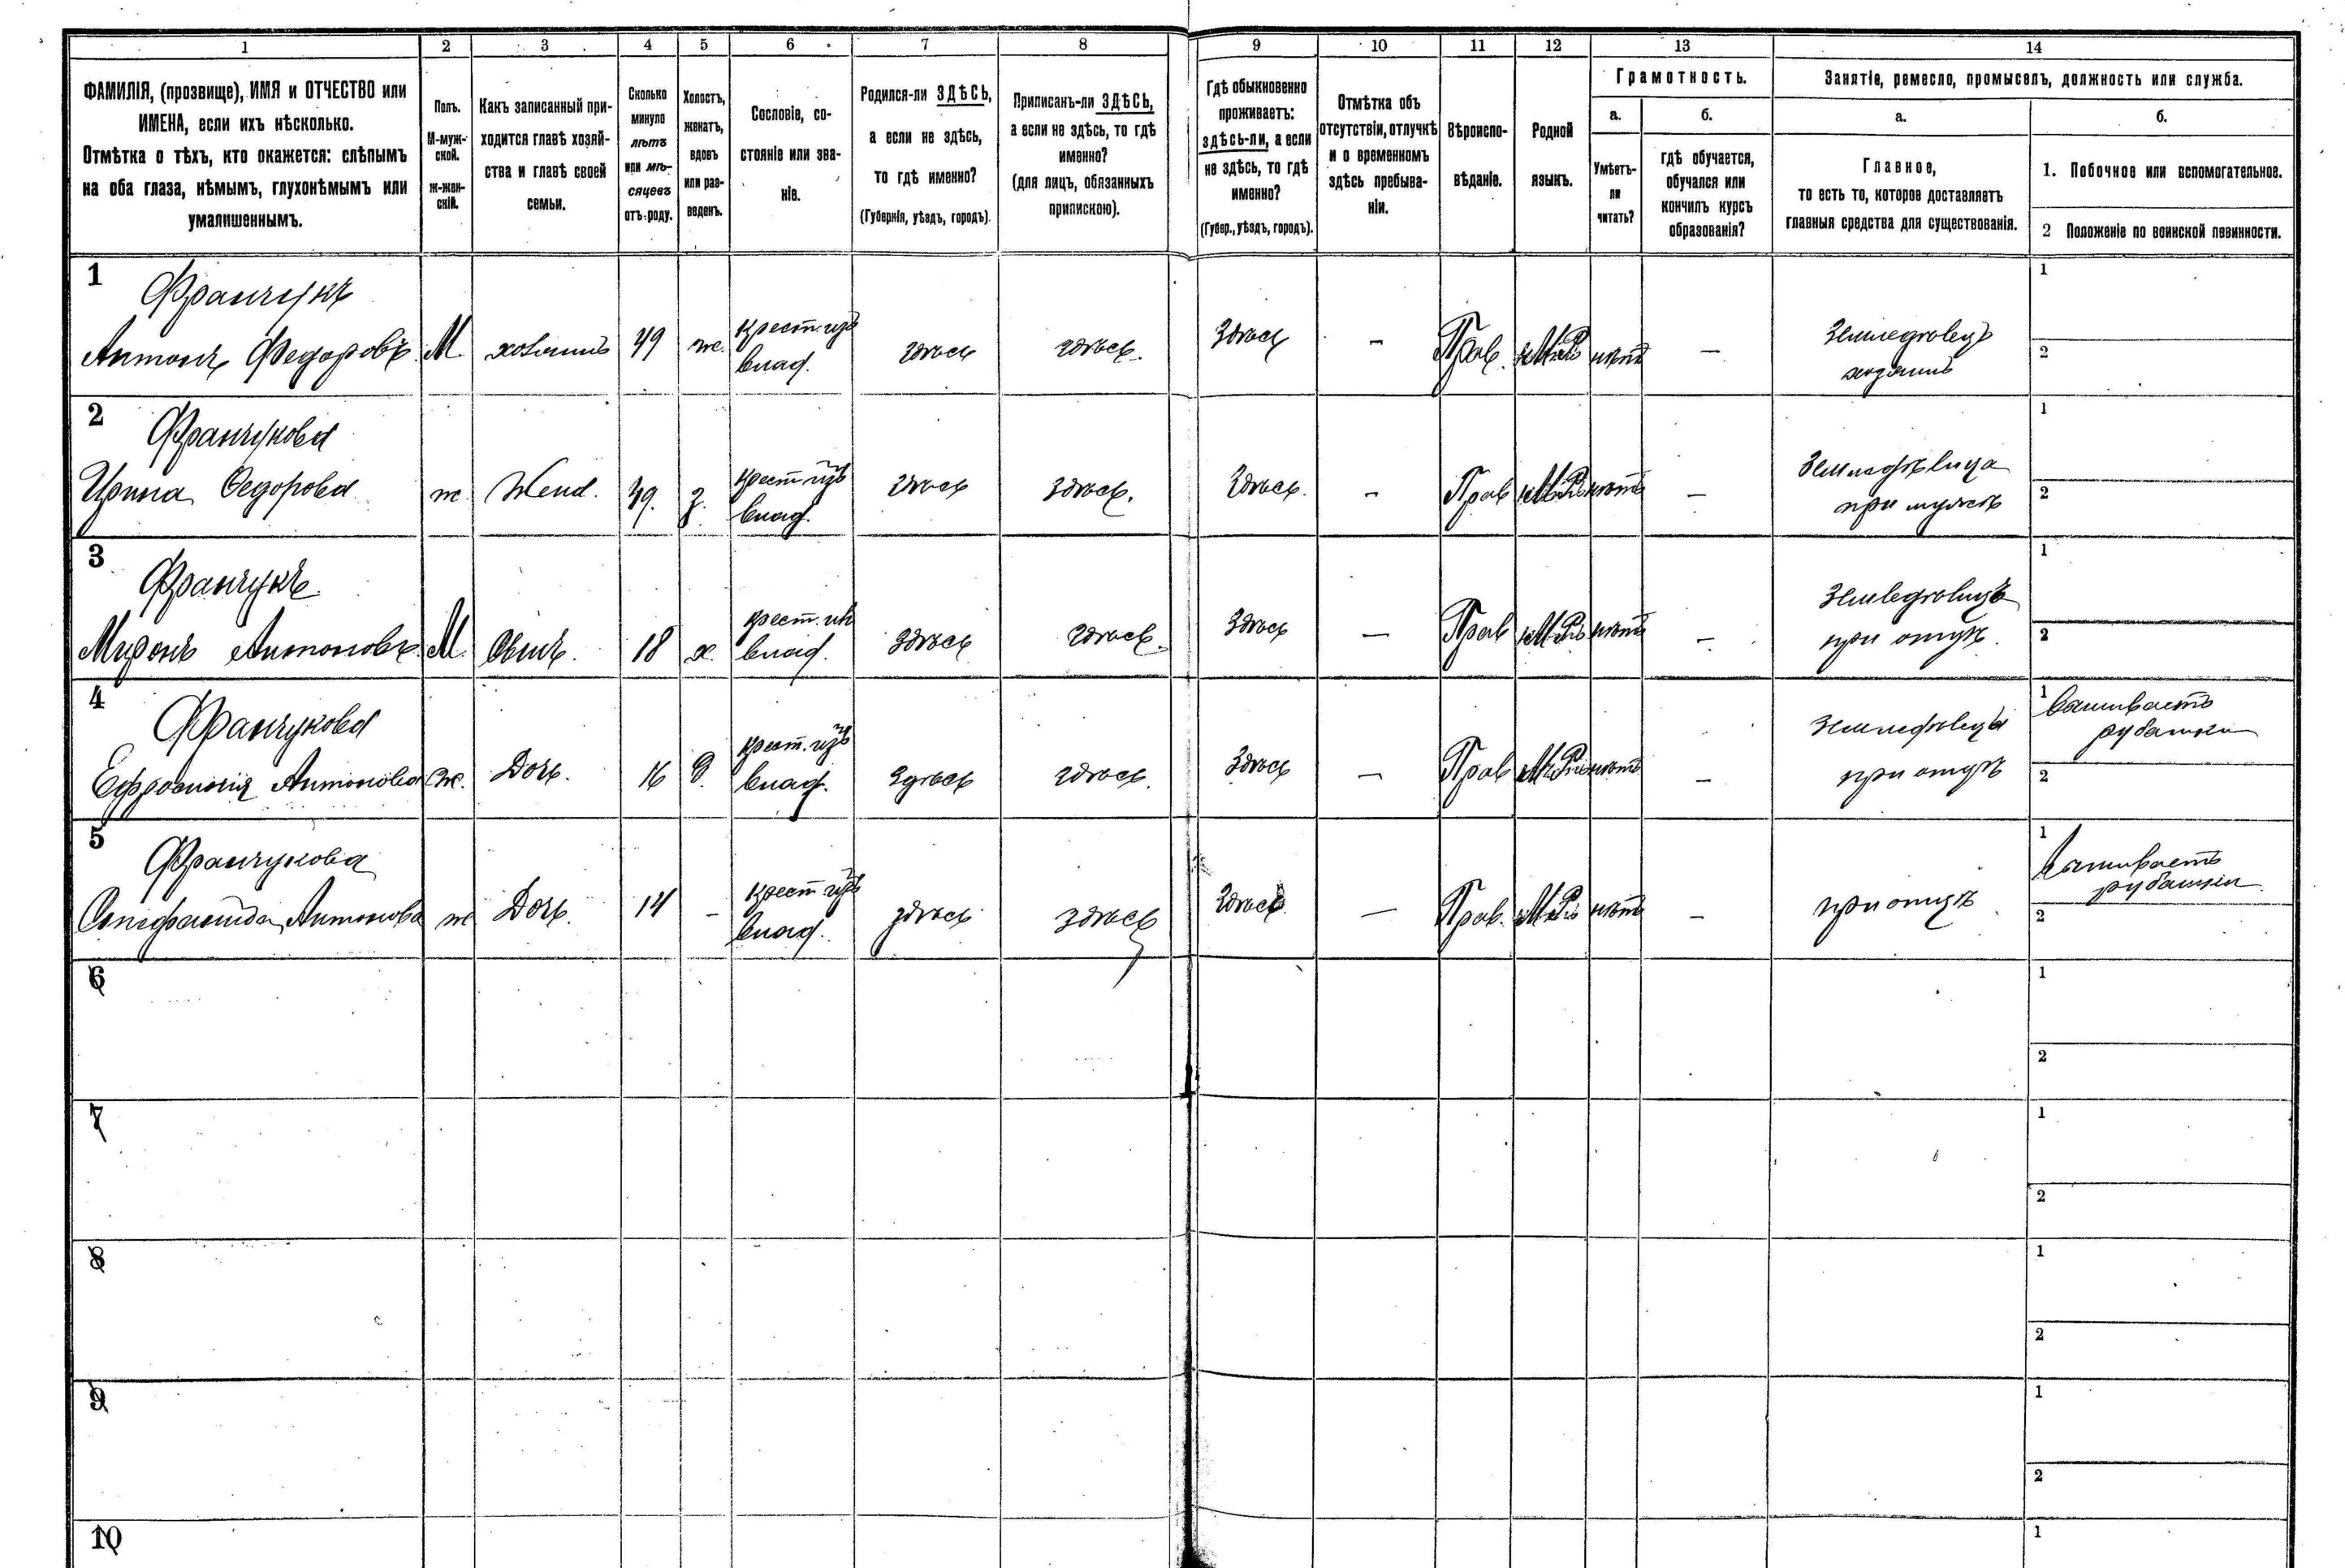 1 2 3 4 5 6 7 8 9 10 11 12 13 14
ФАМИЛІЯ, (прозвище), ИМЯ и ОТЧЕСТВО или
ИМЕНА, если ихъ нѣсколько.
Отмѣтка о тѣхъ, кто окажется: слѣпымъ
на оба глаза, нѣмымъ, глухонѣмымъ или
умалишеннымъ.
Полъ.
М-муж-
ской.
ж-жен-
скій.
Какъ записанный при-
ходится главѣ хозяй-
ства и главѣ своей
семьи.
Сколько
минуло
лѣтъ
или мѣ-
сяцевъ
отъ роду.
Холостъ,
женатъ,
вдовъ
или раз-
веденъ.
Сословіе, со-
стояніе или зва-
ніе.
Родился-ли ЗДѢСЬ,
а если не здѣсь,
то гдѣ именно?
(Губернія, уѣздъ, городъ).
Приписанъ-ли ЗДѢСЬ,
а если не здѣсь, то гдѣ
именно?
(для лицъ, обязанныхъ
припискою).
Гдѣ обыкновенно
проживаетъ:
здѣсь-ли, а если
не здѣсь, то гдѣ
именно?
(Губер., уѣздъ, городъ).
Отмѣтка объ
отсутствіи, отлучкѣ
и о временномъ
здѣсь пребыва-
ніи.
Вѣроиспо-
вѣданіе.
Родной
языкъ.
Грамотность.
а.
Умѣетъ-
ли
читать?
б.
гдѣ обучается,
обучался или
кончилъ курсъ
образованія?
Занятіе, ремесло, промыселъ, должность или служба.
а.
Главное,
то есть то, которое доставляетъ
главныя средства для существованія.
б.
1. Побочное или вспомогательное.
2 Положеніе по воинской повинности.
1
Франчукъ
Антонъ Федоровъ М хозяинъ 49 ж. крест. изъ
влад. здѣсь здѣсь. Здѣсь — Прав. нѣтъ — Земледѣлецъ
хозяинъ
1
2
2
Франчукова
Ирина Федорова ж. Жена. 49. з. крест. изъ
влад. здѣсь здѣсь. Здѣсь. — Прав нѣтъ — Земледѣлица
при мужѣ
1
2
3
Франчукъ
Миронъ Антоновъ М Сынъ. 18 х. крест. изъ
влад. здѣсь здѣсь. Здѣсь — Прав нѣтъ — Земледѣлецъ
при отцѣ.
1
2
4
Франчукова
Ефросинія Антонова ж. Дочь. 16 д. крест. изъ
влад. здѣсь здѣсь. Здѣсь — Прав нѣтъ —
при отцѣ
1 вышиваетъ
рубашки
2
5
Франчукова
Антонова ж Дочь. 14 — крест. изъ
влад. здѣсь здѣсь Здѣсь — Прав. нѣтъ — при отцѣ
1 Вышиваетъ
рубашки
2
6
1
2
7
1
2
8
1
2
9
1
2
10
1